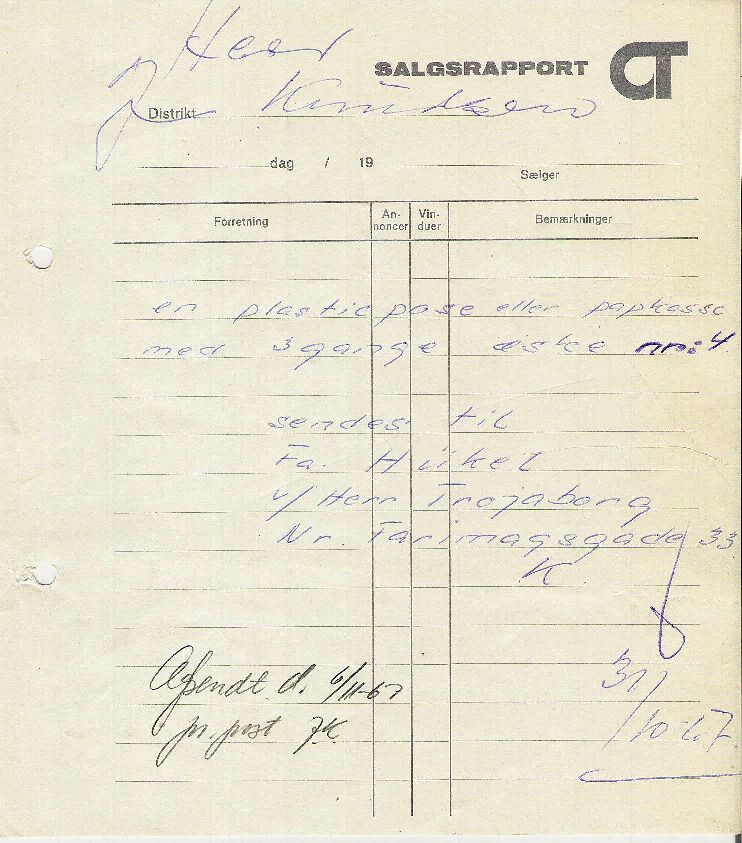 Herr
SALGSRAPPORT CT
Distrikt Knudsen
dag / 19
Sælger
Forretning An-noncer Vin-duer Bemærkninger
en plasticpose eller papkasse
med 3 gange æske nr: 4
sendes til
Fa. Hüket
v/ Herr Trojaborg
Nr. Farimagsgade 33
K
31/10-67
Afsendt d. 6/11-67
pr. post JK